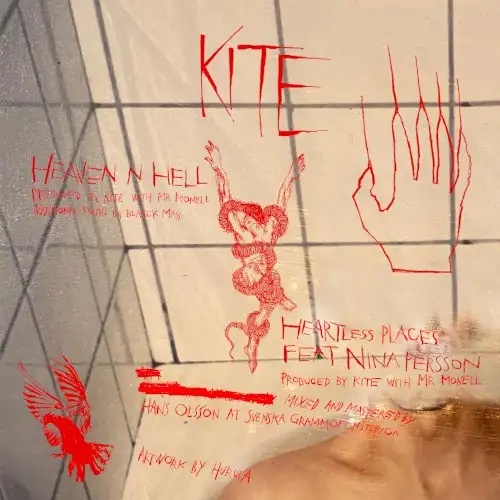 KITE
HEAVEN N HELL
PRODUCED BY KITE WITH MR MONELL
ADDITIONAL SYNTHS BY BLANCK MASS
HEARTLESS PLACES
FEAT NINA PERSSON
PRODUCED BY KITE WITH MR MONELL
MIXED AND MASTERED BY
HANS OLSSON AT SVENSKA GRAMMOFONSTUDION
ARTWORK BY